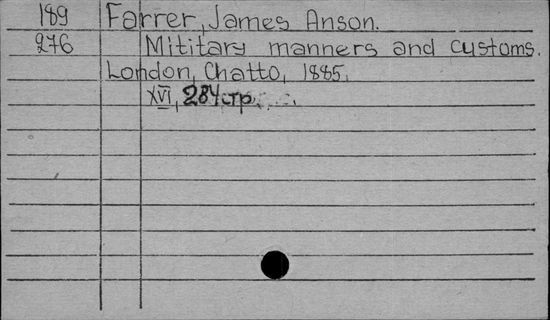 189 Farrer, James Anson.
276 Mititary manners and customs.
London, Chatto, 1885.
XVI, 284 стр.